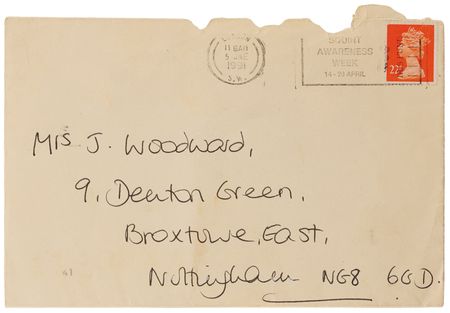 11 BAM
5 JNE
1991
S.W.
SQUINT
AWARENESS
WEEK
14 - 20 APRIL
22
Mrs J. Woodward,
9, Denton Green,
Broxtowe, East,
Nottingham NG8 6GD.